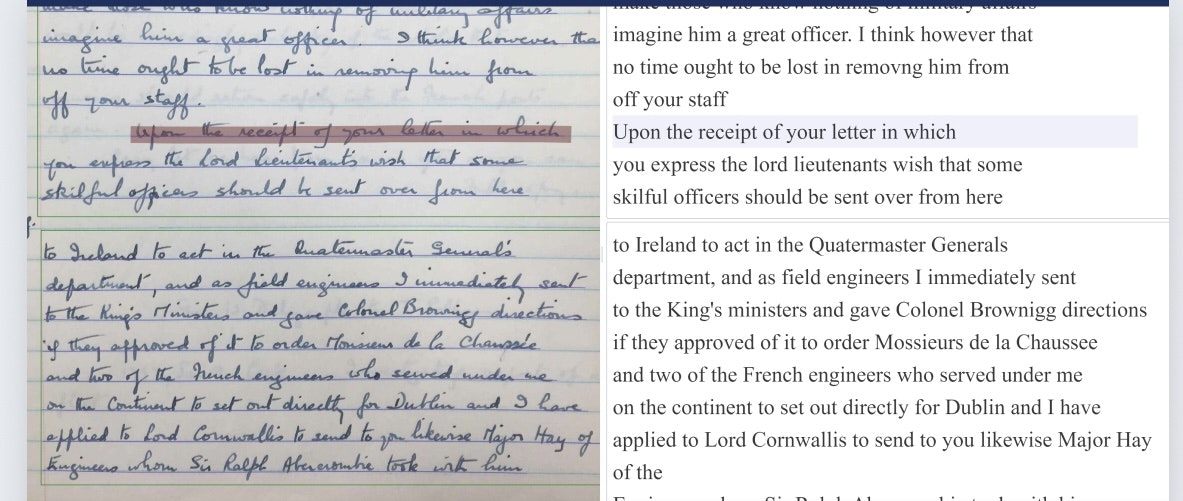 make those who know nothing of military affairs
imagine him a great officer. I think however tha
no time ought to be lost in removing him from
off your staff.
Upon the receipt of your letter in which
you express the Lord Lieutenant's wish that some
skilful officers should be sent over from here
to Ireland to act in the Quatermaster General's
department, and as field engineers I immediately sent
to the King's Ministers and gave Colonel Brownigg directions
if they approved of it to order Monsieur de la Chaussée
and two of the French engineers who served under me
on the Continent to set out directly for Dublin and I have
applied to Lord Cornwallis to send to you likewise Major Hay of
Engineers whom Sir Ralph Abercrombie took with him
make those who know nothing of military affairs
imagine him a great officer. I think however that
no time ought to be lost in removng him from
off your staff
Upon the receipt of your letter in which
you express the lord lieutenants wish that some
skilful officers should be sent over from here
to Ireland to act in the Quatermaster Generals
department, and as field engineers I immediately sent
to the King's ministers and gave Colonel Brownigg directions
if they approved of it to order Mossieurs de la Chaussee
and two of the French engineers who served under me
on the continent to set out directly for Dublin and I have
applied to Lord Cornwallis to send to you likewise Major Hay
of the